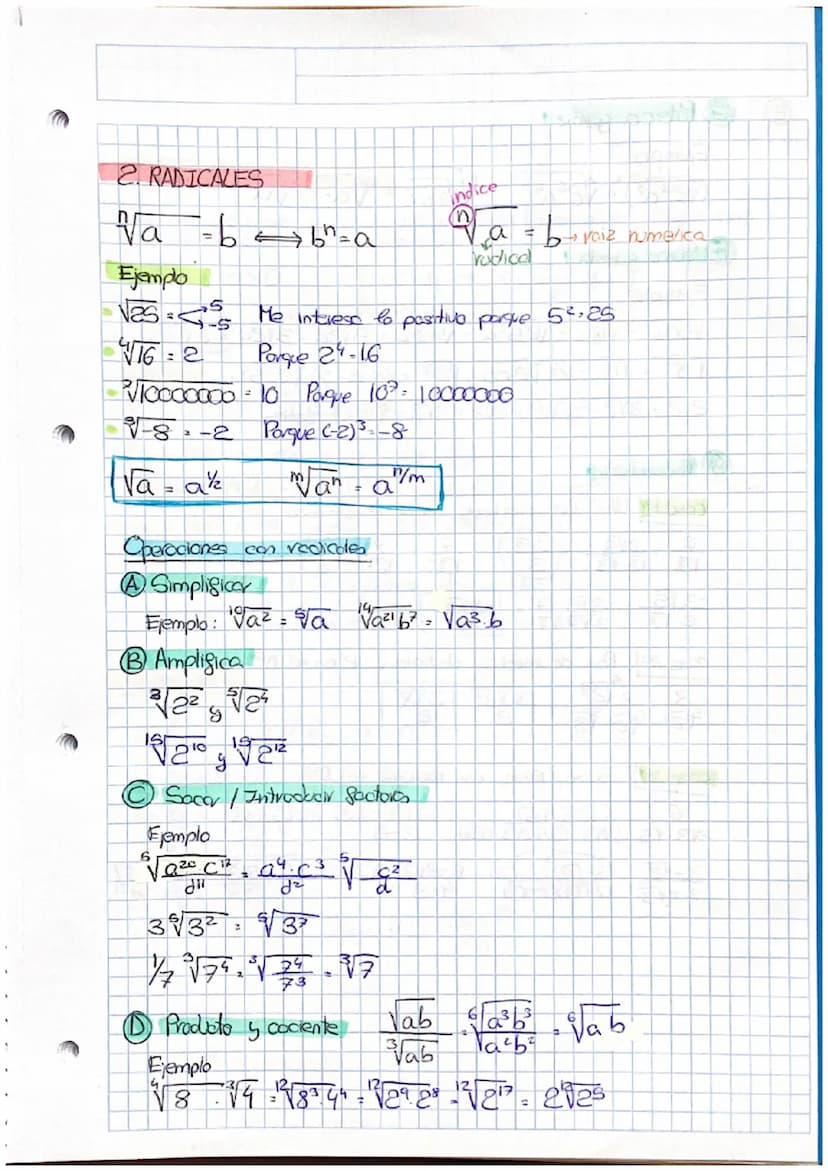 2. RADICALES
ⁿ√a = b ⟺ bⁿ = a
índice
ⁿ√a = b → raiz numerica
radical
Ejemplo
√25 = < 5 -5 Me interesa lo positivo porque 5² = 25
⁴√16 = 2 Porque 2⁴ = 16
⁷√10000000 = 10 Porque 10⁷ = 10000000
³√-8 = -2 Porque (-2)³ = -8
√a = a^½ ᵐ√aⁿ = a^n/m
Operaciones con radicales
Ⓐ Simplificar
Ejemplo: ¹⁰√a² = ⁵√a ¹⁴√a²¹b⁷ = √a³·b
Ⓑ Amplifica
³√2² y ⁵√2⁴
¹⁵√2¹⁰ y ¹⁵√2¹²
Ⓒ Sacar / Introducir factores
Ejemplo
⁵√(a²⁰ c¹⁷ / d¹¹) = (a⁴·c³ / d²) ⁵√(c² / d)
3 ⁵√3² = ⁵√3⁷
1/7 ³√7⁴ = ³√(7⁴ / 7³) = ³√7
Ⓓ Producto y cociente √ab / ³√ab = ⁶√(a³b³ / a²b²) = ⁶√ab
Ejemplo
⁴√8 · ³√4 = ¹²√8³·4⁴ = ¹²√2⁹·2⁸ = ¹²√2¹⁷ = 2 ¹²√2⁵